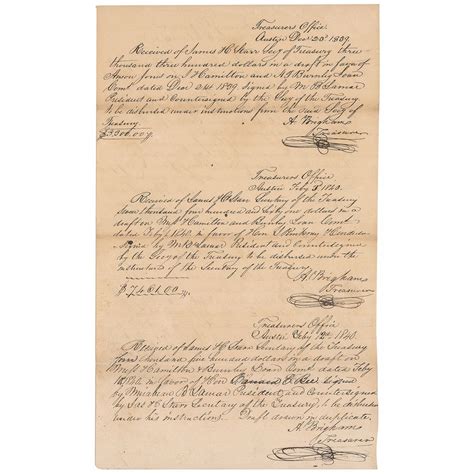 Treasurers Office
Austin Dec 23d 1839.
Received of James H Starr Secy of Treasury three
thousand three hundred dollars in a draft in favor of
Anson Jones on J Hamilton and A T Burnley Loan
Comt dated Decr 1839. signed by M B Lamar
President and Countersigned by the Secy of the Treasury
to be disbursed under instructions from the said Secy of
Treasury
$3,300.00
A Brigham
Treasurer
Treasurers Office
Austin Feby 1840.
Received of James H Starr Secretary of the Treasury
Seven thousand four hundred and sixty one dollars in a
draft on Hamilton and Burnley Loan Comt
dated Feby 1840 in favor of Hon J Pinkney Henderson
signed by M B Lamar President and Countersigned
by the Secy of the Treasury to be disbursed under the
instructions of the Secretary of the Treasury
$7461.00
A Brigham
Treasurer
Treasurers Office
Austin Feby 12th 1840.
Received of James H Starr Secretary of the Treasury
four thousand five hundred dollars in a draft on
Hamilton & Burnley Loan Comt dated Feby
1840 in favor of Hon Barnard E. Bee signed
by Mirabeau B Lamar President, and Countersigned
by Jas H Starr Secretary of the Treasury, to be disbursed
under his instructions. Draft drawn in duplicate
A. Brigham
Treasurer